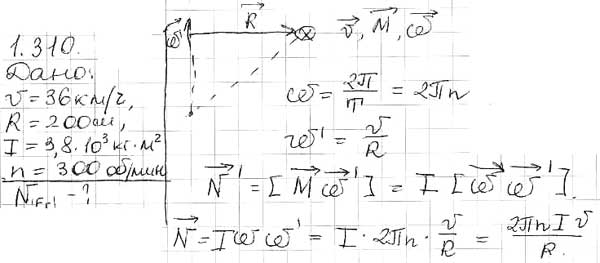 1.310.
Дано:
v = 36 км/ч,
R = 200 м,
I = 3,8·10³ кг·м²
n = 300 об/мин
N - ?
ω' R ⊗ v, M, ω
ω = 2π/T = 2πn
ω' = v/R
N' = [M ω'] = I [ω ω'].
N = Iωω' = I · 2πn · v/R = 2πnIv/R.